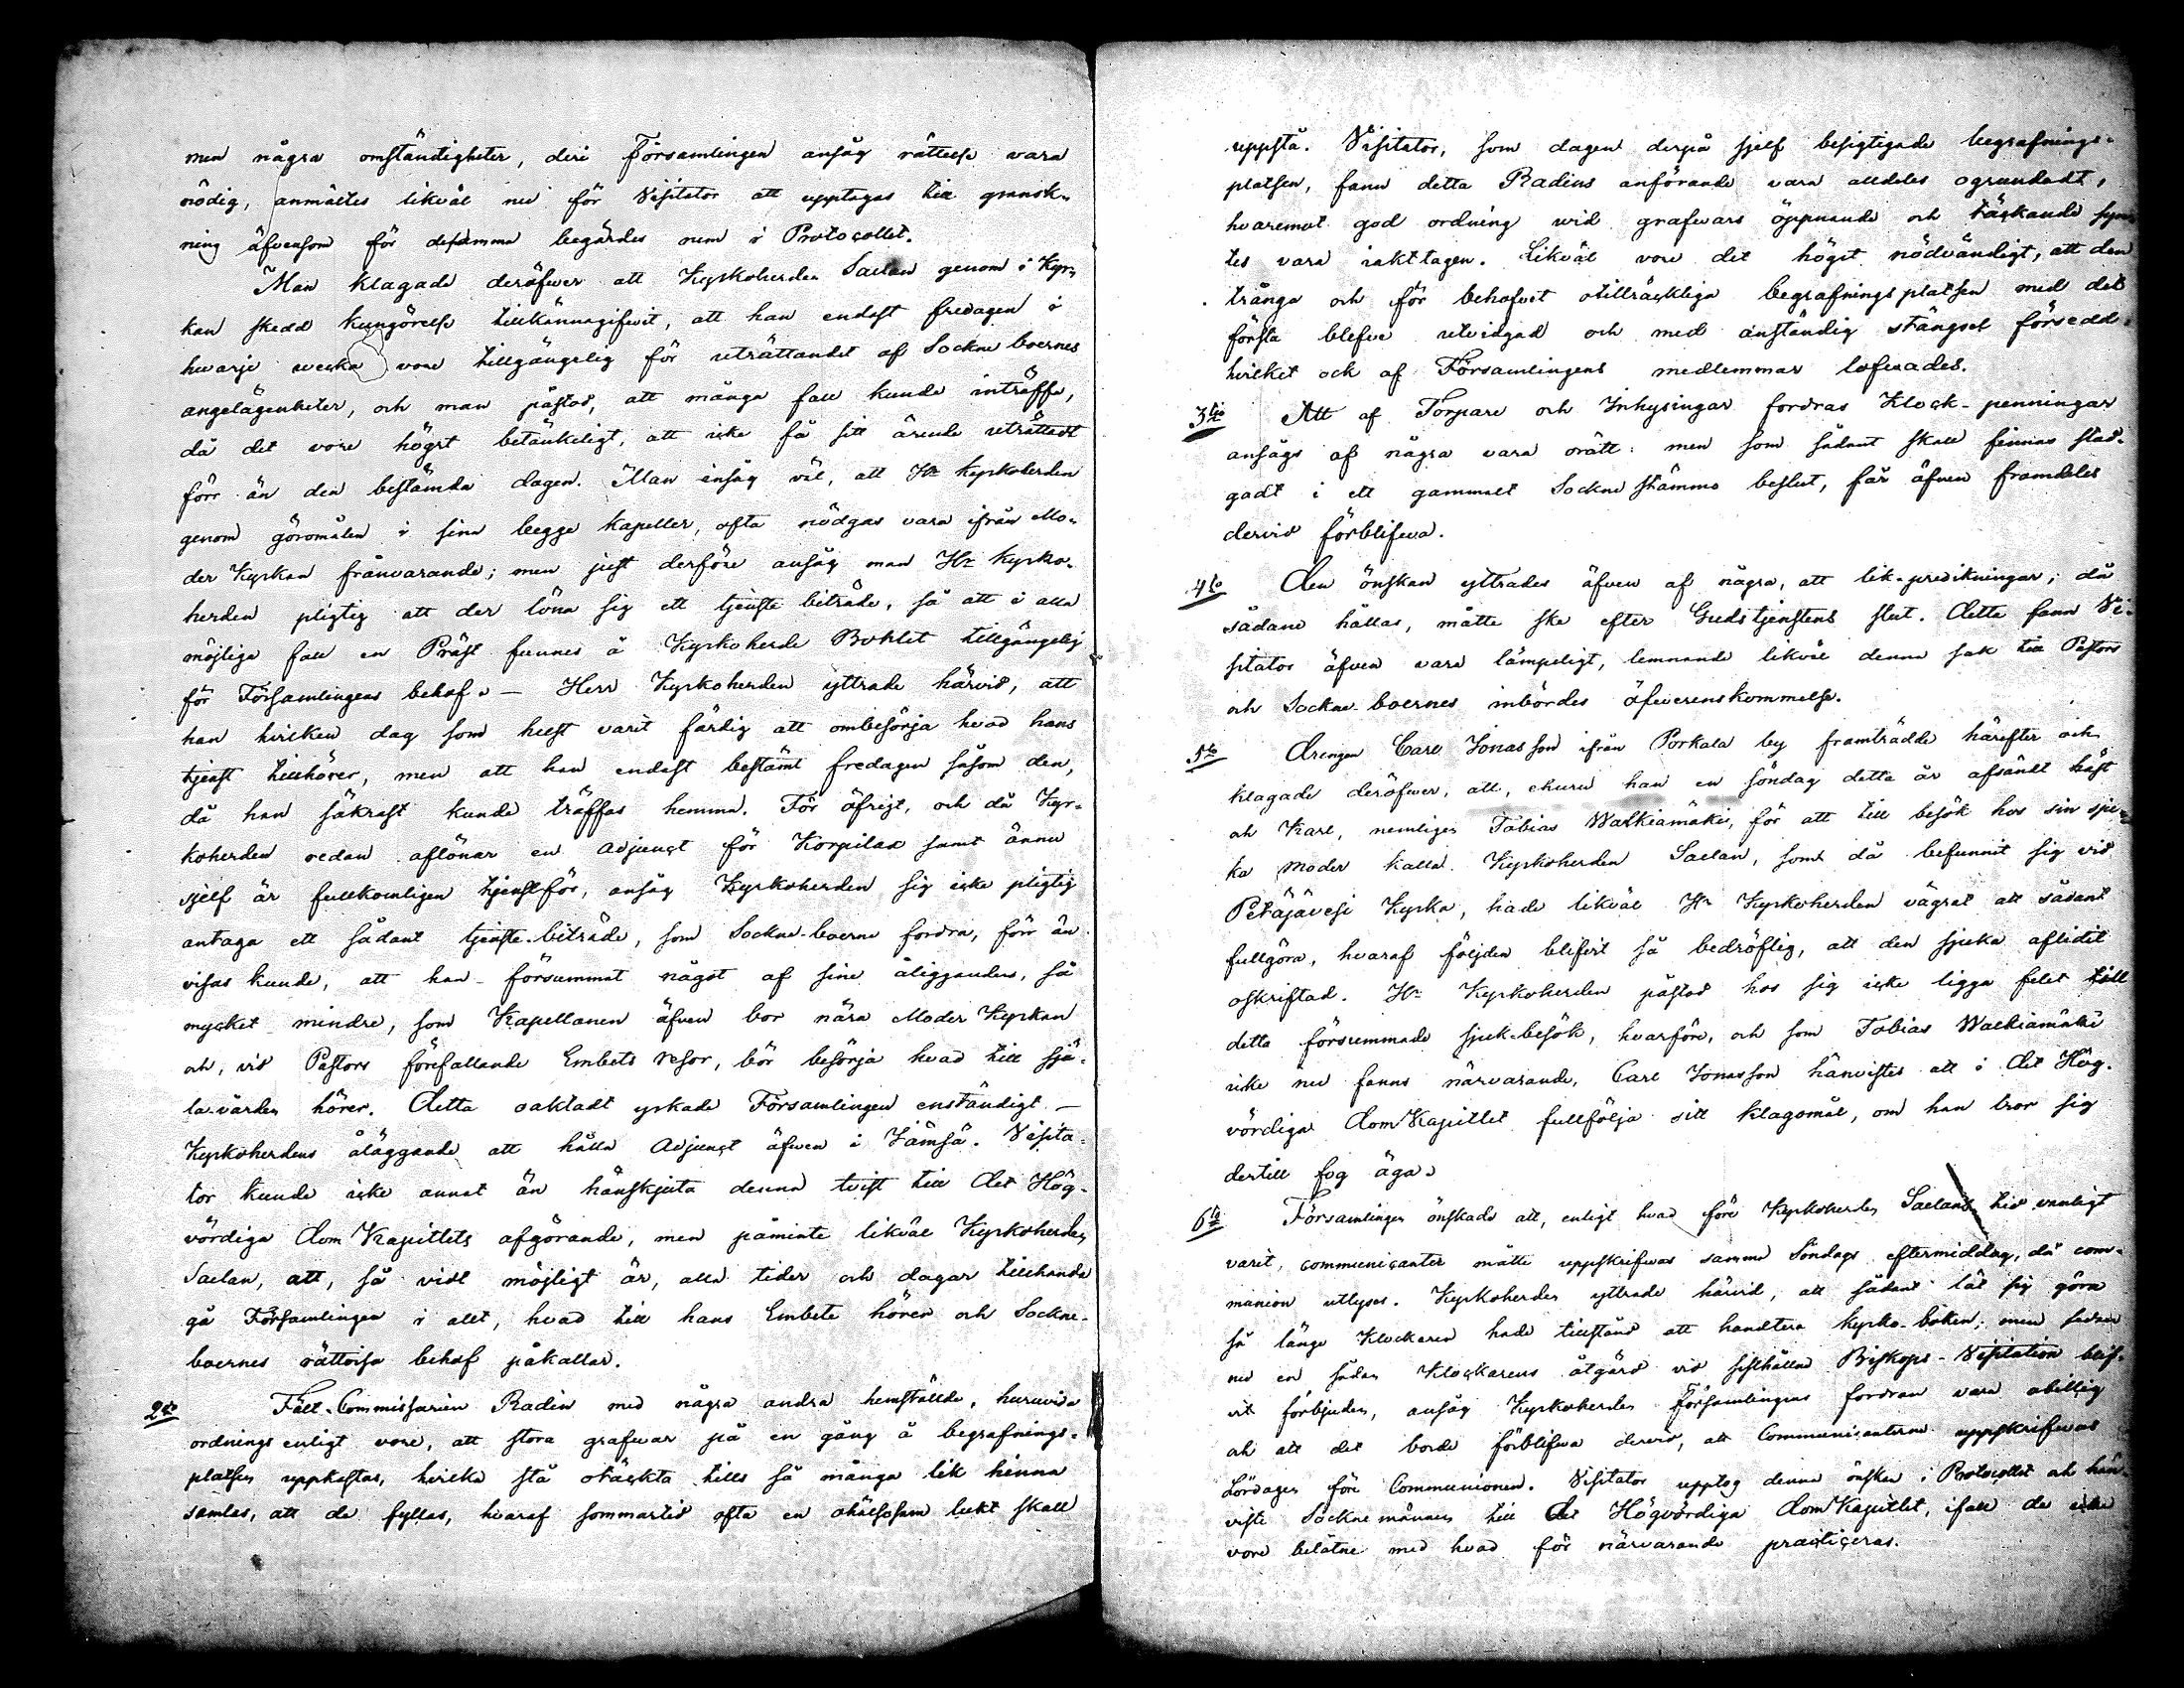 men några omständigheter, deri Församlingen ansåg rättelse vara
nödig, anmältes likväl nu för Visitator att upptagas till gransk-
ning äfvensom för desamma begärdes rum i Protocollet.
Man klagade deröfwer att Kyrkoherden Saelan genom i Kyr-
kan skedd kungörelse tillkännagifwit, att han endast fredagen i
hwarje wecka vore tillgängelig för uträttandet af Sockne boernes
angelägenheter, och man påstod, att många fall kunde inträffa,
då det vore högst betänkeligt, att icke få sitt ärende uträttadt
förr än den bestämda dagen. Man insåg väl, att Hr Kyrkoherden
genom göromålen i sina begge Kapeller, ofta nödgas vara ifrån Mo-
der Kyrkan frånvarande; men just derföre ansåg man Hr Kyrko-
herden pligtig att der löna sig ett tjenste biträde, så att i alla
möjliga fall en Präst funnes å Kyrkoherde Bohlet tillgängelig
för Församlingens behof. — Herr Kyrkoherden yttrade härvid, att
han hvilken dag som helst varit färdig att ombesörja hvad hans
tjenst tillhörer, men att han endast bestämt fredagen såsom den,
då han säkrast kunde träffas hemma. För öfrigt, och då Kyr-
koherden redan aflönar en Adjunct för Korpilax samt ännu
sjelf är fullkomligen tjenstför, ansåg Kyrkoherden sig icke pligtig
antaga ett sådant tjenste-biträde, som Sockne-boerne fordra, förr än
visas kunde, att han försummat något af sine åligganden, så
mycket mindre, som Kapellanen äfven bor nära Moder Kyrkan
och, vid Pastors förefallande Embets resor, bör besörja hvad till sjä-
la-vården hörer. Detta oaktadt yrkade Församlingen enständigt —
Kyrkoherdens åläggande att hålla Adjunct äfwen i Jämsä. Visita-
tor kunde icke annat än hänskjuta denna tvist till Det Hög-
vördiga Dom Kapitlets afgörande, men påminte likväl Kyrkoherden
Saelan, att, så vidt möjligt är, alla tider och dagar tillhanda
gå Församlingen i allt, hvad till hans Embete hörer och Sockne-
boernes rättvisa behof påkallar.
2do Fält-Commissarien Radin med några andra hemställde, huruvida
ordnings enligt vore, att stora grafwar på en gång å begrafnings-
platsen uppkastas, hvilka stå otäckta tills så många lik hinna
samlas, att de fyllas, hvaraf sommartid ofta en ohälsosam lukt skall
uppstå. Visitator, som dagen derpå sjelf besigtigade begrafnings-
platsen, fann detta Radins anförande vara alldeles ogrundadt,
hvaremot god ordning wid grafwars öppnande och täckande syn-
tes vara iakttagen. Likväl vore det högst nödvändigt, att den
trånga och för behofvet otillräckliga begrafnings platsen med det
första blefve utvidgad och med anständig stängsel försedd,
hvilket ock af Församlingens medlemmar lofwades.
3tio Att af Torpare och Inhysingar fordras Klock-penningar
ansågs af några vara orätt: men som sådant skall finnas stad-
gadt i ett gammalt Sockne stämmo beslut, får äfven framdeles
dervid förblifwa.
4to Den önskan yttrades äfven af några, att lik-predikningar, då
sådane hållas, måtte ske efter Gudstjenstens slut. Detta fann Vi-
sitator äfven vara lämpeligt, lemnande likväl denna sak till Pastors
och Sockne-boernes inbördes öfverenskommelse.
5to Drengen Carl Jonasson ifrån Porkala by framträdde härefter och
klagade deröfwer, att, ehuru han en söndag detta år afsändt häst
och Karl, nemligen Tobias Walkiamäki, för att till besök hos sin sju-
ka moder kalla Kyrkoherden Saelan, som då befunnit sig vid
Petäjävesi Kyrka, hade likväl Hr Kyrkoherden vägrat att sådant
fullgöra, hvaraf följden blifvit så bedröflig, att den sjuka aflidit
oskriftad. Hr Kyrkoherden påstod hos sig icke ligga felet till
detta försummade sjuk-besök, hvarföre, och som Tobias Walkiamäki
icke nu fanns närvarande, Carl Jonasson hänvistes att i Det Hög-
vördiga Dom Kapitlet fullfölja sitt klagomål, om han tror sig
dertill fog äga.
6to Församlingen önskade att, enligt hvad före Kyrkoherden Saelans tid vanligt
varit, communicanter måtte uppskrifwas samma Söndags eftermiddag, då com-
munion utlyses. Kyrkoherden yttrade härvid, att sådant lät sig göra
så länge Klockaren hade tillstånd att handtera kyrko-boken; men sedan
nu en sådan Klockarens åtgärd vid sisthållna Biskops-Visitation blif-
vit förbjuden, ansåg Kyrkoherden Församlingens fordran vara obillig
och att det borde förblifwa dervid, att Communicanterne uppskrifwas
Lördagen före Communionen. Visitator upptog denna önskan i Protocollet och hän-
viste Sockne männen till Det Högvördiga Dom Kapitlet, ifall de icke
vore belåtne med hvad för närvarande practiceras.